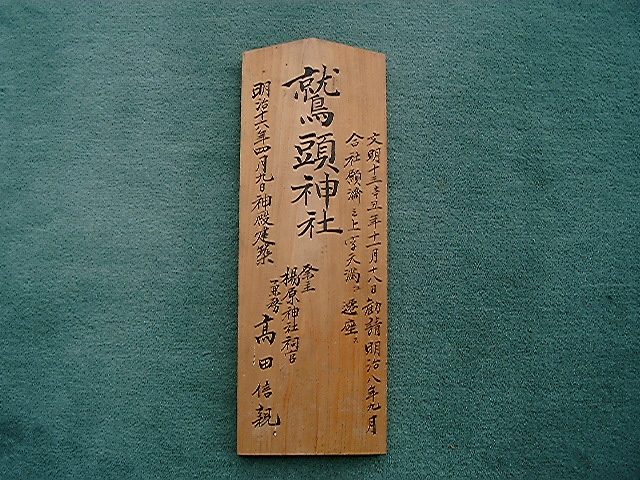 文明十三辛丑年十一月十八日勧請明治八年九月
合社願済ニ上字天満江遷座ス
鷲頭神社
祭主
楊原神社祠官
兼務
高田信親
明治十六年四月九日神殿建築